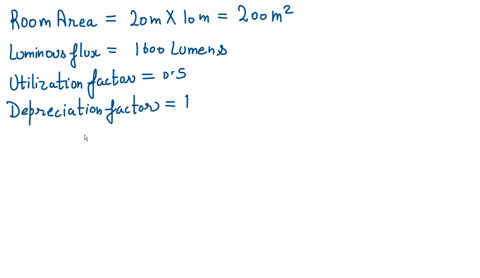 Room Area = 20m X 10m = 200m²
Luminous flux = 1600 Lumens
Utilization factor = 0.5
Depreciation factor = 1